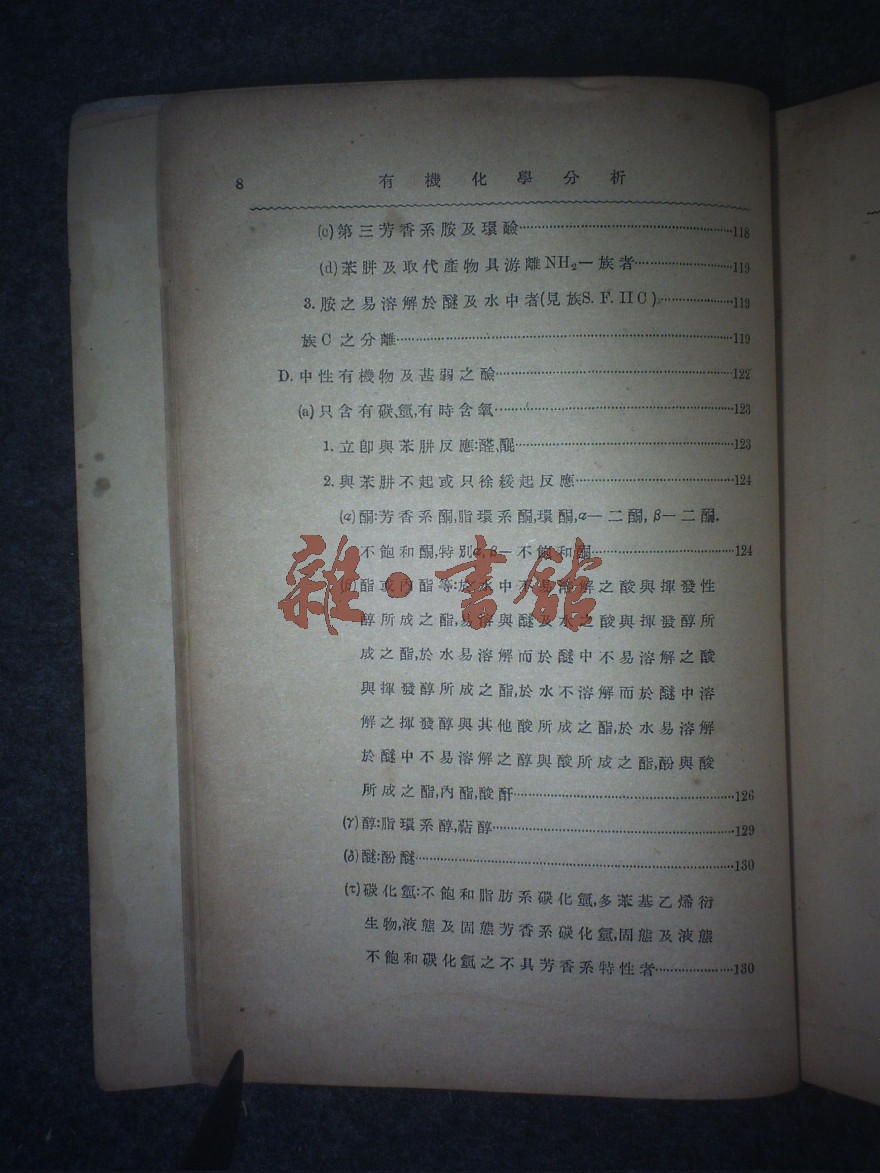 8 有機化學分析
(c)第三芳香系胺及環鹼……118
(d)苯肼及取代產物具游離NH₂一族者……119
3.胺之易溶解於醚及水中者(見族S.F.IIC)……119
族C之分離……119
D.中性有機物及甚弱之鹼……122
(a)只含有碳,氫,有時含氧……123
1.立卽與苯肼反應:醛,醌……123
2.與苯肼不起或只徐緩起反應……124
(α)酮:芳香系酮,脂環系酮,環酮,α—二酮,β—二酮,
不飽和酮,特別α,β—不飽和酮……124
(β)酯或內酯等:於水中不易溶解之酸與揮發性
醇所成之酯,易溶與醚及水之酸與揮發醇所
成之酯,於水易溶解而於醚中不易溶解之酸
與揮發醇所成之酯,於水不溶解而於醚中溶
解之揮發醇與其他酸所成之酯,於水易溶解
於醚中不易溶解之醇與酸所成之酯,酚與酸
所成之酯,內酯,酸酐……126
(γ)醇:脂環系醇,萜醇……129
(δ)醚:酚醚……130
(τ)碳化氫:不飽和脂肪系碳化氫,多苯基乙烯衍
生物,液態及固態芳香系碳化氫,固態及液態
不飽和碳化氫之不具芳香系特性者……130
雜·書館